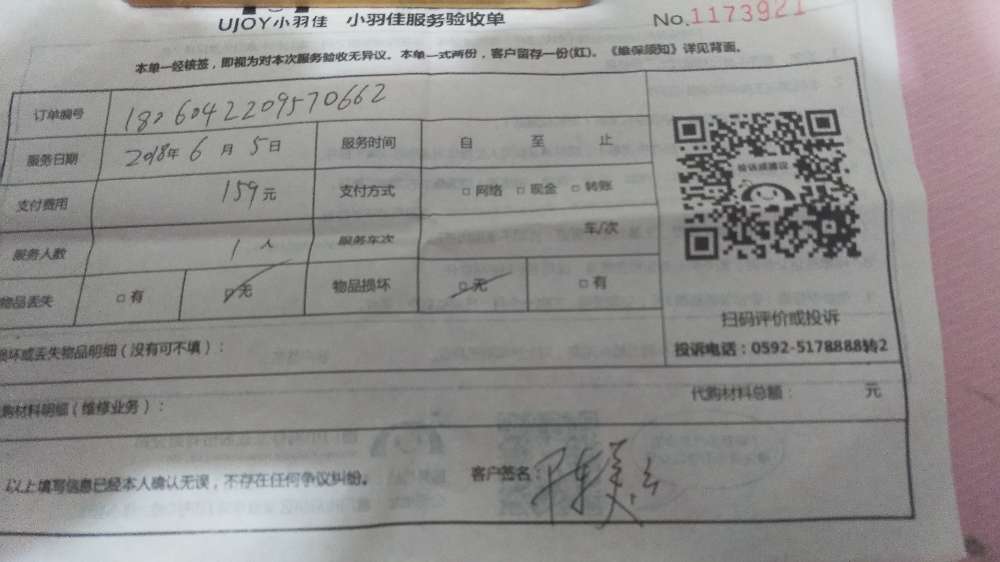 UJOY小羽佳 小羽佳服务验收单 No.1173921
本单一经核签，即视为对本次服务验收无异议。本单一式两份，客户留存一份(红)。《维保须知》详见背面。
订单编号 1806042209570662
服务日期 2018年 6 月 5 日 服务时间 自 至 止
支付费用 159元 支付方式 □ 网络 □ 现金 □ 转账
服务人数 1 人 服务车次 车/次
物品丢失 □ 有 □ 无 物品损坏 □ 无 □ 有
投诉或建议
扫码评价或投诉
投诉电话：0592-5178888转2
损坏或丢失物品明细（没有可不填）：
购材料明细（维修业务）： 代购材料总额： 元
以上填写信息已经本人确认无误，不存在任何争议纠纷。 客户签名：